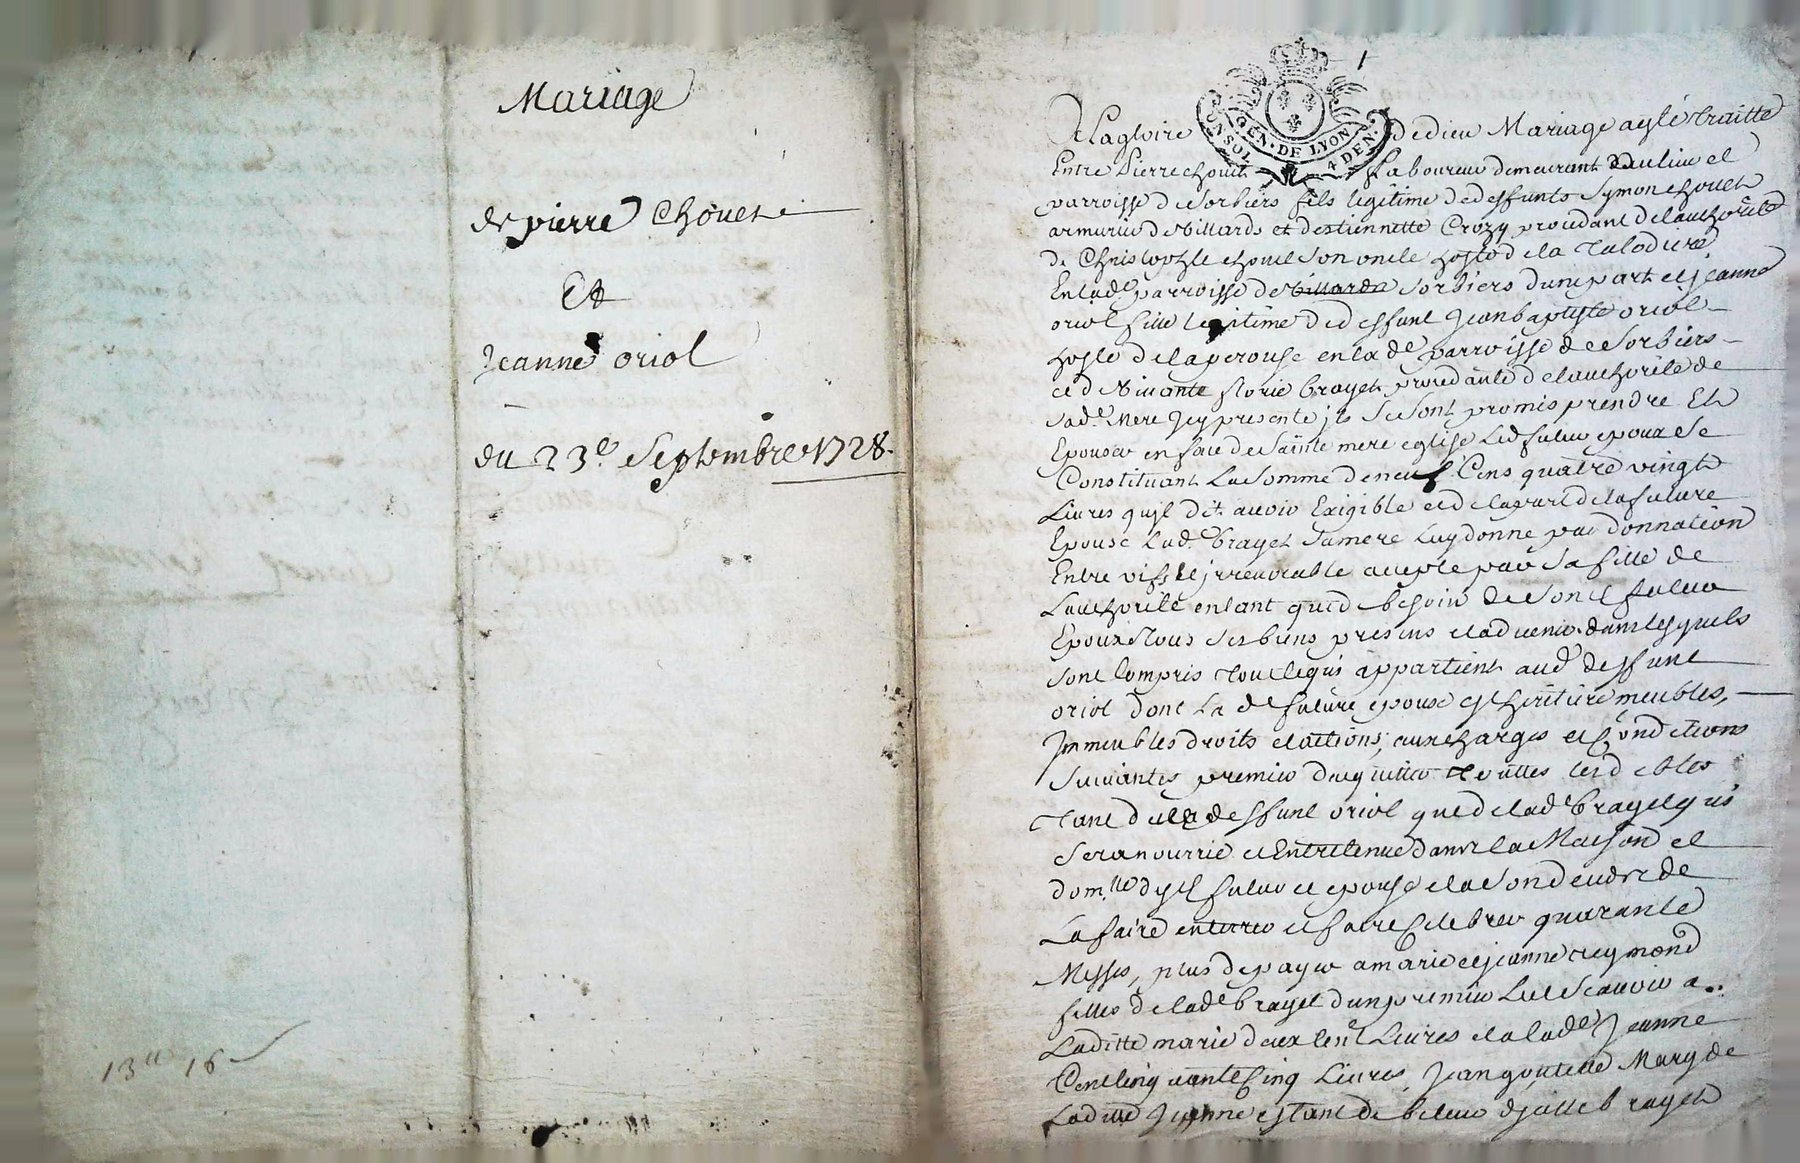 Mariage
de pierre Chouet
Et
Jeanne oriol
du 23.e Septembre 1728.
13 16
1
GEN. DE LYON
UN SOL 4 DEN.
A la gloire de dieu Mariage a esté traitté
Entre Pierre chouet laboureur demeurant au lieu et
parroisse de Sorbiers fils legitime de deffunts Symon chouet
armurier de Villards et destiennette Crozy procedant de lauthorité
de Christophle chouet son oncle hoste de la Talodiere
En lad.e parroisse de Villards Sorbiers dune part et jeanne
oriol fille legitime de deffunt Jean baptiste oriol
hoste de laperouse en lad.e parroisse de Sorbiers
et de vivante florie brayet procedante de lauthorité de
sad.e mere Icy presente jls se sont promis prendre Et
Epouser en face de Sainte mere eglise Led futur epoux se
Constituant La somme de neuf Cens quatre vingt
Livres quil dit avoir Exigible et de la part de la future
Epouse Lad.e brayet sa mere Luy donne par donnation
Entre vifs et jrrevocable accepté par sa fille de
Lauthorité entant que de besoin de son d futur
Epoux tous ses biens presens et advenir dans lesquels
sont Compris tout ce qui appartient aud deffunt
oriol dont La de future epouse est heritiere meubles,
Immeubles droits et actions, aux charges et Conditions
suivantes premier dacquitter touttes les debtes
tant du de deffunt oriol que de lad.e brayet qui
sera nourrie et Entretenue dans la Maison et
dom.lle futur et epouse et a Son deceds de
La faire enterrer et faire Celebrer quarante
Messes, plus de payer a marie et jeanne reymond
filles de lad.e brayet dun premier Lict scavoir a
Laditte marie deux Cent Livres et a lad.e Jeanne
Cent Cinq uante Cinq Livres, Jean Mary de
Ladite Jeanne estant debiteur brayet